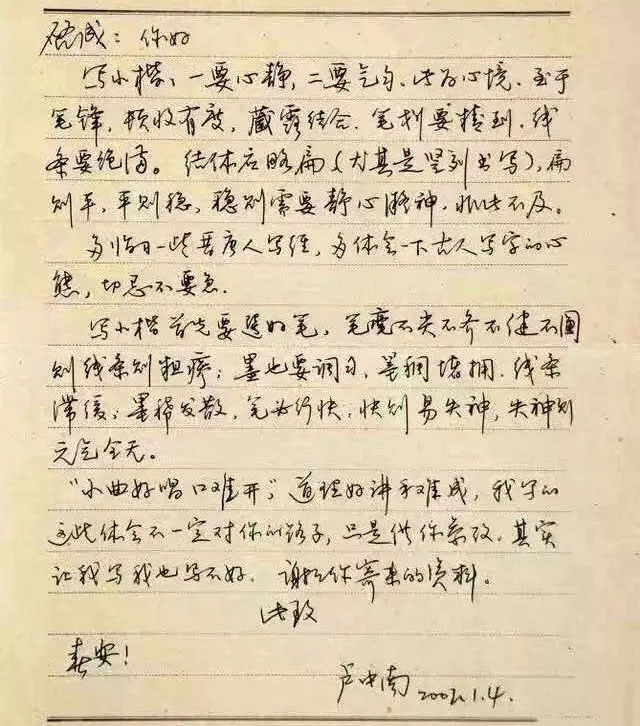 启成：你好
写小楷，一要心静，二要气匀，此为心境。至于
笔锋，顿收有度，藏露结合，笔划要精到，线
条要饱满。结体应略扁（尤其是竖列书写），扁
则平，平则稳，稳则需要静心凝神，非此不及。
多临习一些晋唐人写经，多体会一下古人写字的心
态，切忌不要急。
写小楷首先要选好笔，笔瘦不尖不齐不健不圆
则线条则粗瘠；墨也要调匀，墨稠堵拥，线条
滞缓；墨稀发散，笔必行快，快则易失神，失神则
元气全无。
“小曲好唱口难开”，道理好讲和难成，我写的
这些体会不一定对你的路子，只是供你参考。其实
让我写我也写不好。谢谢你寄来的资料。
此致
春安！
卢中南 2002.1.4.